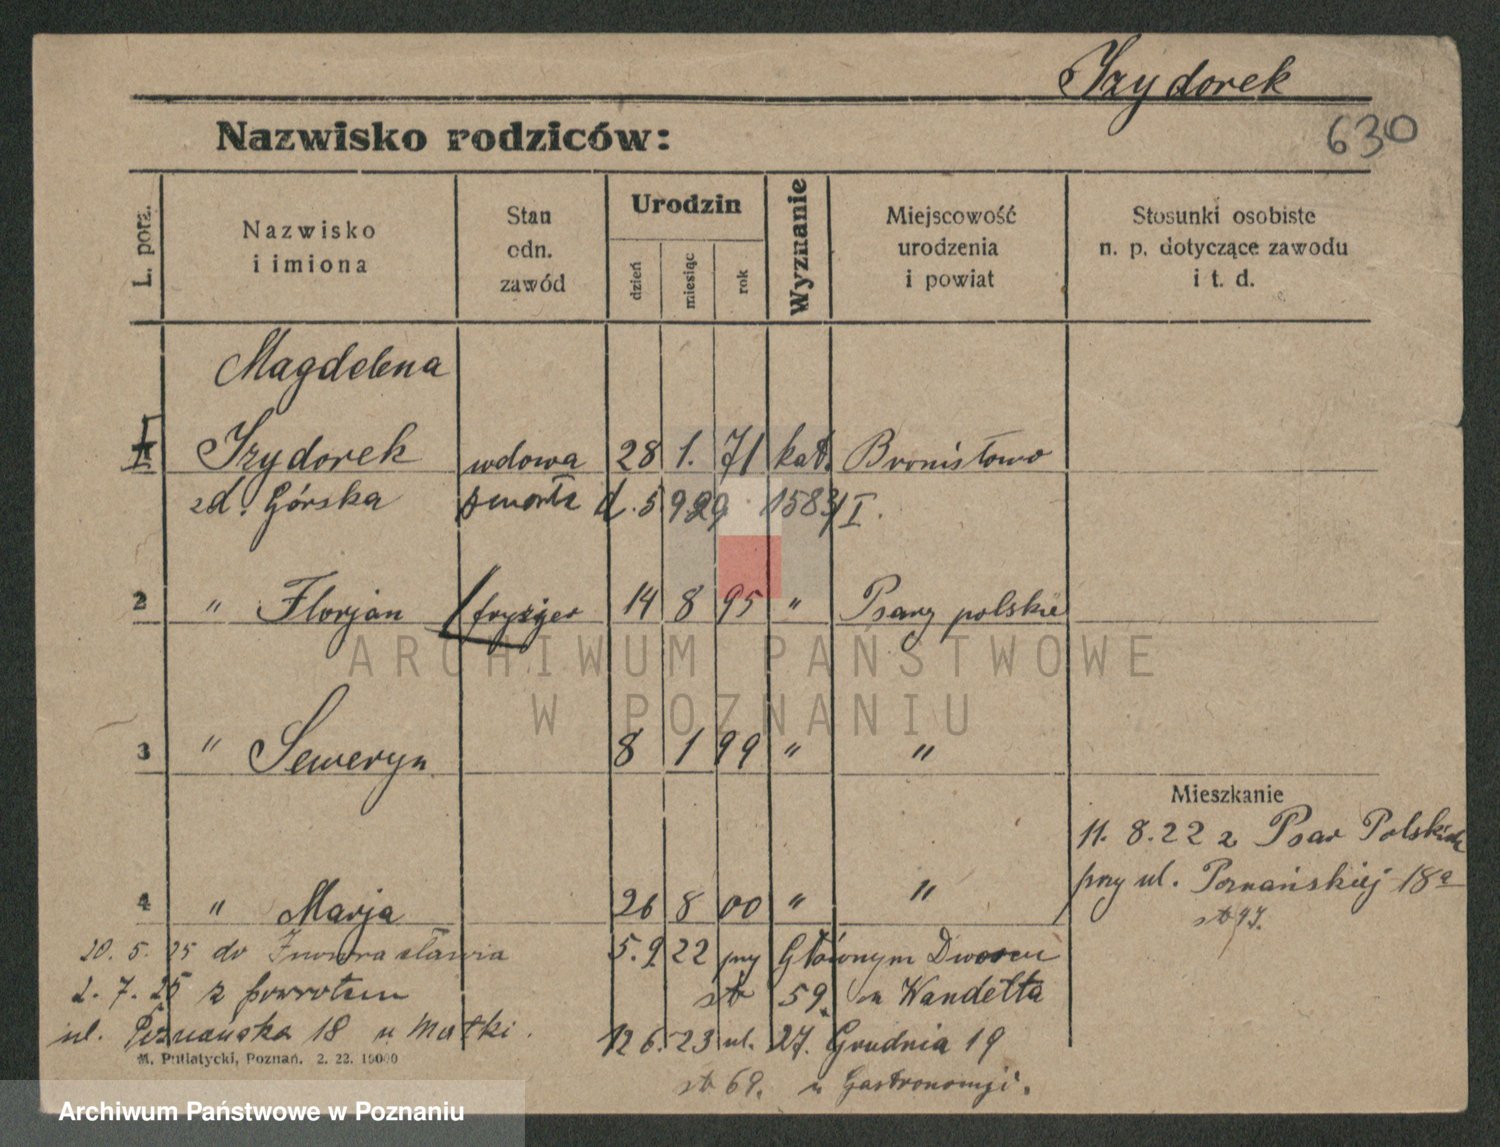 Izydorek
630
Nazwisko rodziców:
L. porz.
Nazwisko i imiona
Stan odn. zawód
Urodzin
dzień
miesiąc
rok
Wyznanie
Miejscowość urodzenia i powiat
Stosunki osobiste n. p. dotyczące zawodu i t. d.
Magdelena
1 Izydorek wdowa 28 1. 71 kat. Bronisłowo
zd. Górska zmarła d. 5 9 29 1583/I.
2 " Florjan fryzjer 14 8 95 " Psary polskie
ARCHIWUM PAŃSTWOWE
W POZNANIU
3 " Seweryn 8 1 99 " "
Mieszkanie
11. 8. 22 z Psar Polskich
przy ul. Poznańskiej 18a
str 97.
4 " Marja 26 8 00 " "
20. 5. 25 do Inowrocławia 5. 9 22 przy Głównym Dworcu
2. 7. 25 z powrotem str 59. u Wandelta
ul. Poznańska 18 u Matki. 12 6. 23 ul. 27. Grudnia 19
M. Putiatycki, Poznań. 2. 22. 15000
str 69. u Gastronomji.
Archiwum Państwowe w Poznaniu